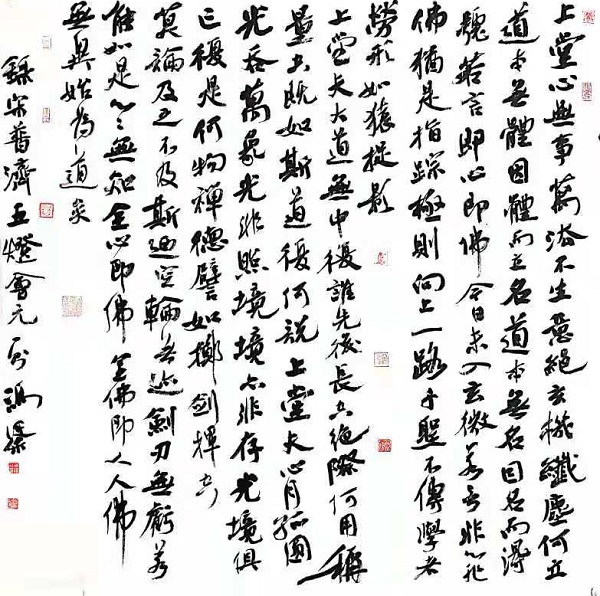 上堂心無事萬法不生意絕玄機纖塵何立
道本無體因體而立名道本無名因名而得
號若言即心即佛今日未入玄微若言非心非
佛猶是指踪極則向上一路千聖不傳學者
勞形如猿捉影
上堂夫大道無中復誰先後長空絕際何用稱
量空既如斯道復何說上堂夫心月孤圓
光吞萬象光非照境境亦非存光境俱
亡復是何物禪德譬如擲劍揮空
莫論及之不及斯迺空輪無迹劍刃無虧若
能如是心心無知全心即佛全佛即人人佛
無異始為道矣
錄宋普濟五燈會元句馮